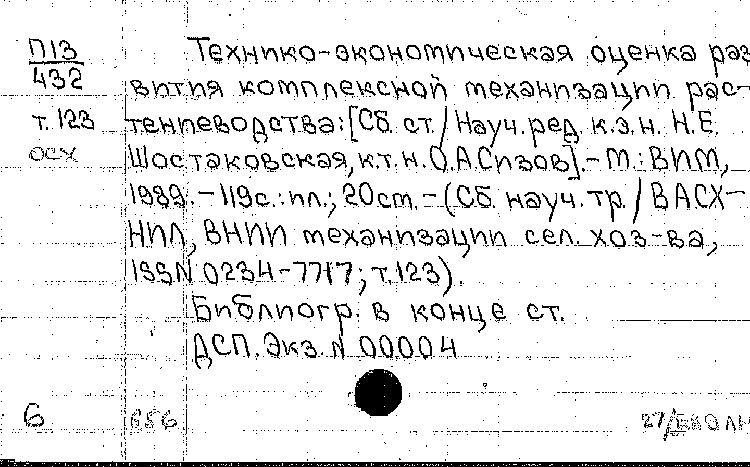 П13
432
т. 123
осх
Технико-экономическая оценка раз
вития комплексной механизации рас-
тениеводства: [Сб. ст. / Науч. ред. к.э.н. Н.Е.
Шостаковская, к.т.н. О.А. Сизов]. - М.: ВИМ,
1989. - 119 с.: ил.; 20 cm. - (Сб. науч. тр. / ВАСХ-
НИЛ, ВНИИ механизации сел. хоз-ва,
ISSN 0234-7717; т. 123).
Библиогр. в конце ст.
ДСП. Экз. N 00004
6
656
27/